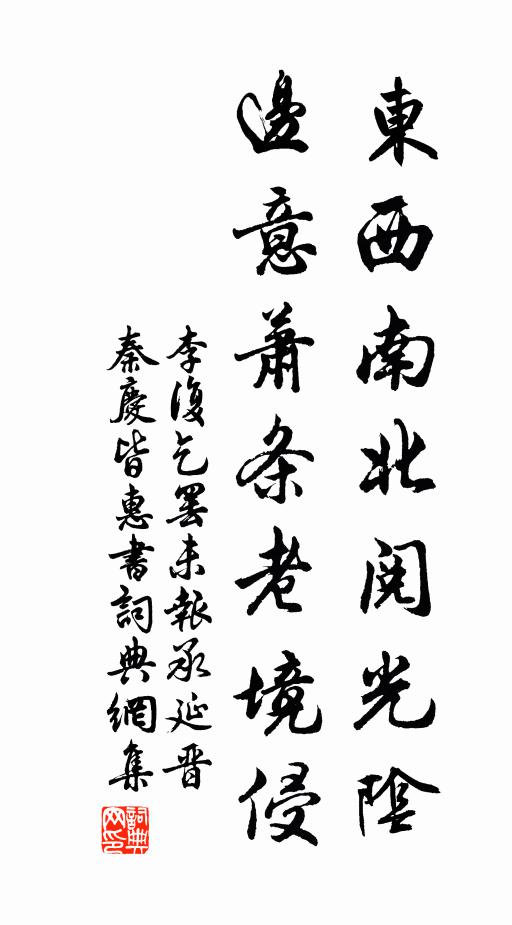 東西南北閱光陰
邊意蕭条老境侵
李復乞罷未報承延晋
秦慶皆惠書詞典網集
詞典
网